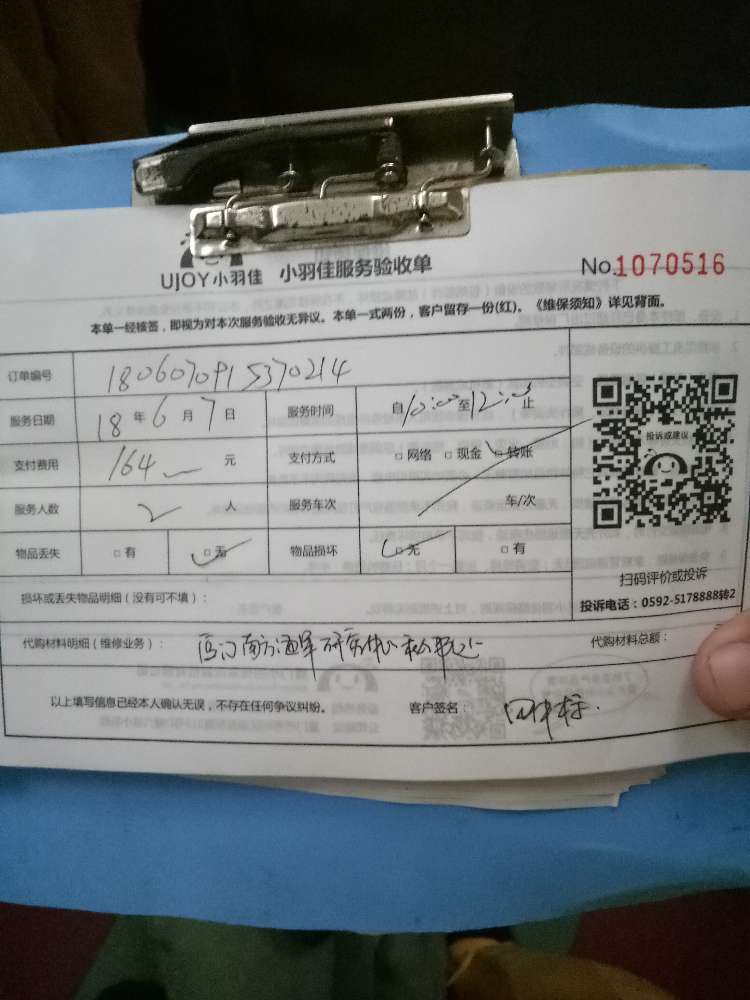 UJOY小羽佳 小羽佳服务验收单
No.1070516
本单一经核签，即视为对本次服务验收无异议。本单一式两份，客户留存一份(红)。《维保须知》详见背面。
订单编号 1806070915370214
服务日期 18 年 6 月 7 日 服务时间 自10:00至12:00止
支付费用 164 元 支付方式 □网络 □现金 □转账
服务人数 2 人 服务车次 车/次
物品丢失 □有 □无 物品损坏 □无 □有
投诉或建议
扫码评价或投诉
投诉电话：0592-5178888转2
损坏或丢失物品明细（没有可不填）：
代购材料明细（维修业务）： 厦门南方海洋研究中心 代购材料总额：
以上填写信息已经本人确认无误，不存在任何争议纠纷。 客户签名：